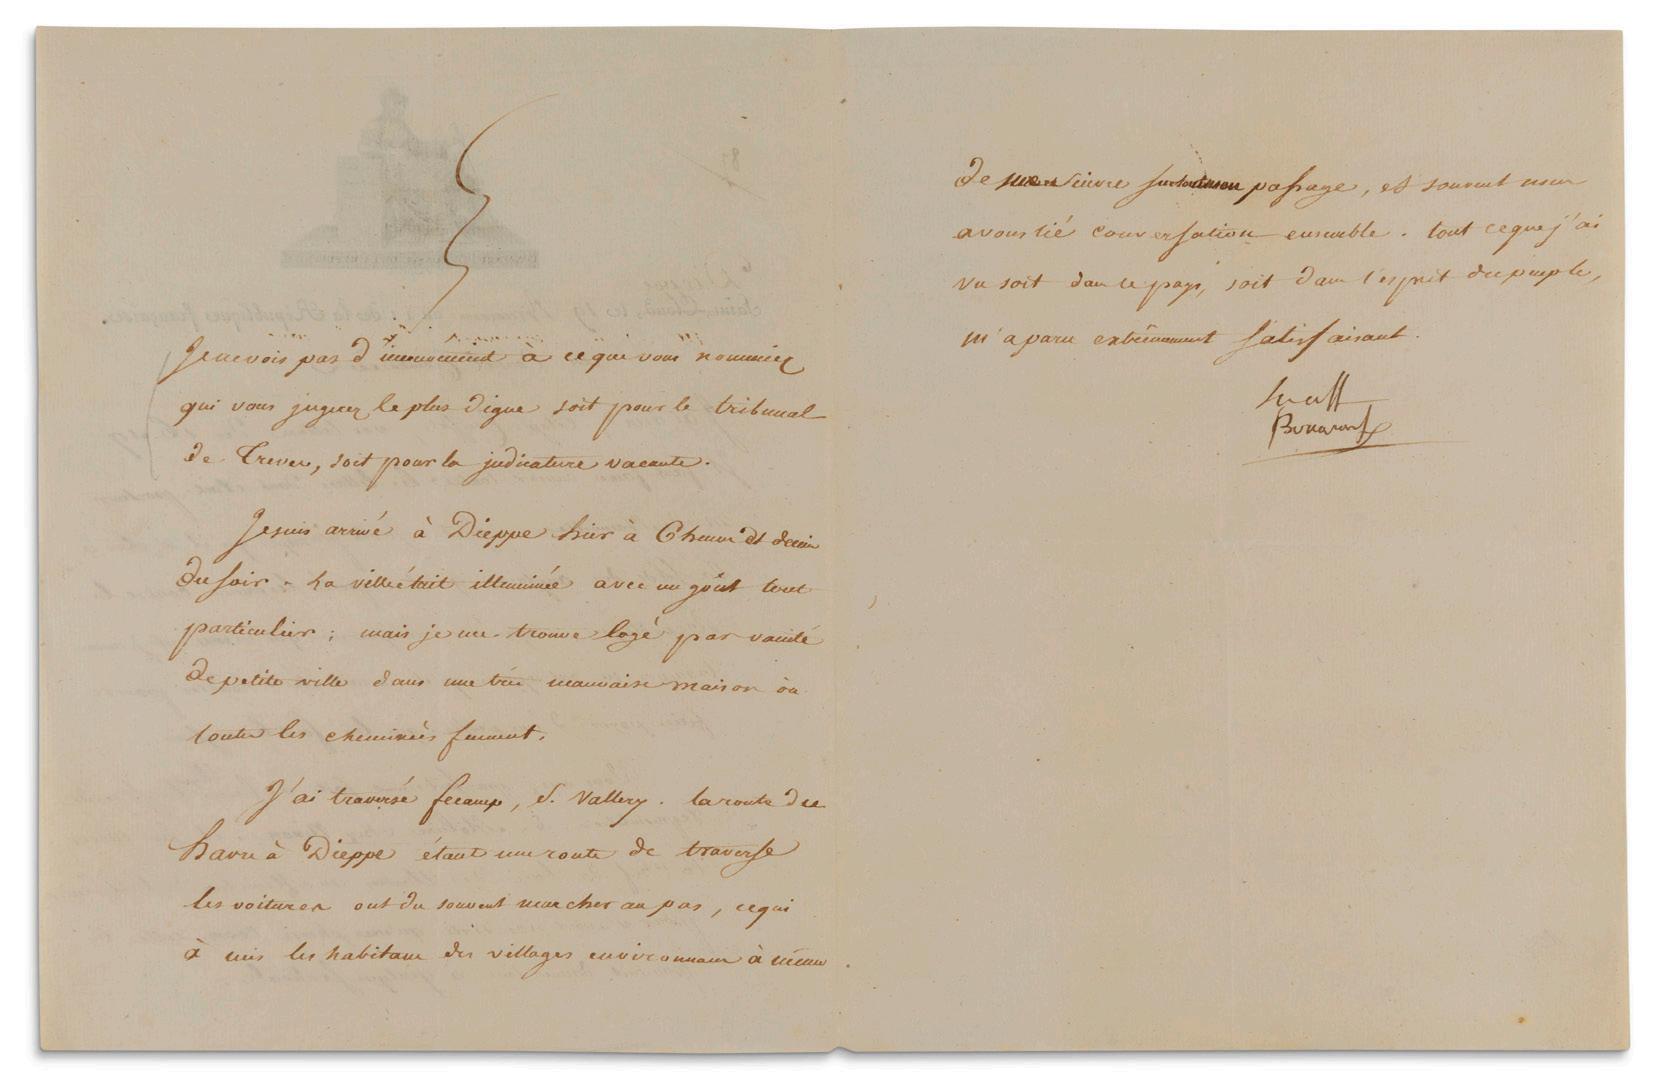 Je ne vois pas d'inconvenient à ce que vous nommiez
qui vous jugerez le plus digne soit pour le tribunal
de Treves, soit pour la judicature vacante.
Je suis arrivé à Dieppe hier à 6 heures et demie
du soir. La ville était illuminée avec un goût tout
particulier ; mais je me trouve logé par vanité
de petite ville dans une très mauvaise maison où
toutes les cheminées fument.
J'ai traversé fecamp, S. Vallery. la route du
havre à Dieppe étant une route de traverse
les voitures ont du souvent marcher au pas, ce qui
à mis les habitans des villages environnans à même
de me suivre sur tout mon passage, et souvent nous
avons lié conversation ensemble. tout ce que j'ai
vu soit dans le pays, soit dans l'esprit du peuple,
m'a paru extrêmement satisfaisant.
Bonaparte